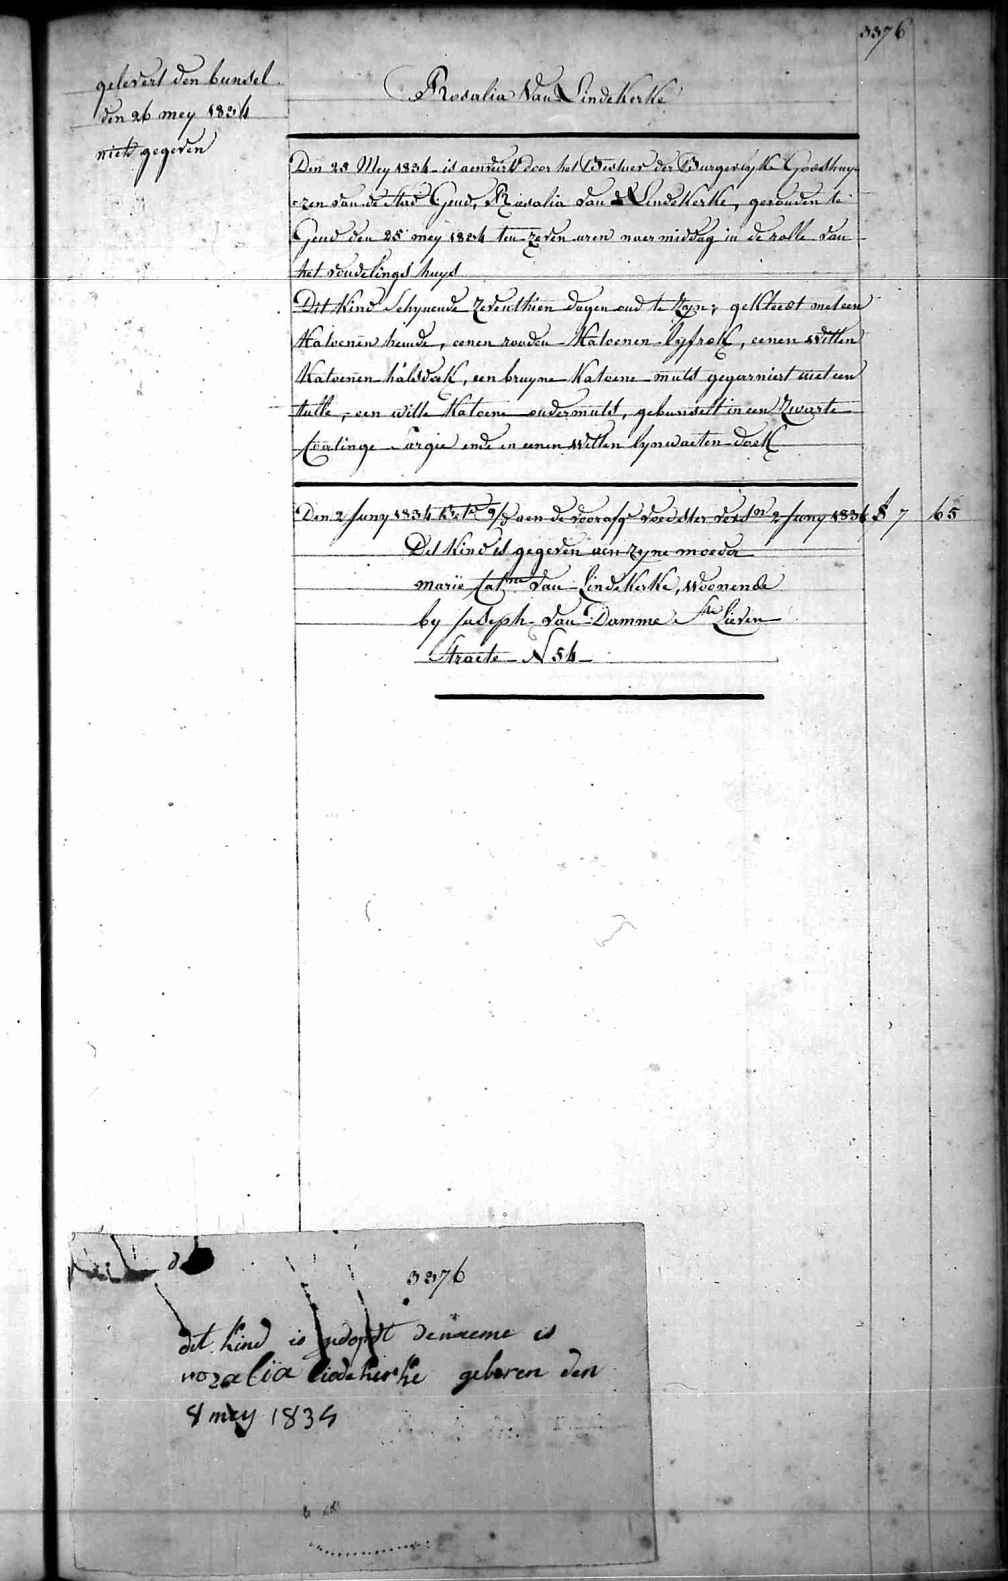 3376
gelevert den bunsel
den 26 mey 1834
niets gegeven
Rosalia Van Lindekerke
Den 25 Mey 1834 is aenveird door het Bestuer der Burgerlyke Godshuy-
-zen van de stad Gend, Rosalia van Lindekerke, gevonden te
Gend den 25 mey 1834 ten zeven uren naermiddag in de rolle van
het vondelings huys
Dit Kind schynende zeventhien dagen oud te zyn; gekleed met een
Katoenen hemde, eenen rooden Katoenen lyfrok, eenen witten
Katoenen halsdoek, een bruyne Katoene muts gegarniert met een
tulle, een witte Katoene ondermuts, gebunselt in een zwarte
sargie ende in eenen witten lynwaeten doek
Den 2 Juny 1834 aen de voorsg voedster 2 Juny 1834 7 65
Dit Kind is gegeven aen zyne moeder
marie Cathne van Lindekerke, woonende
by Joseph van Damme Ste Lieven
Straete N 54
3376
dit kind is gedopt denaeme is
rozalia liedekerke geboren den
8 mey 1834